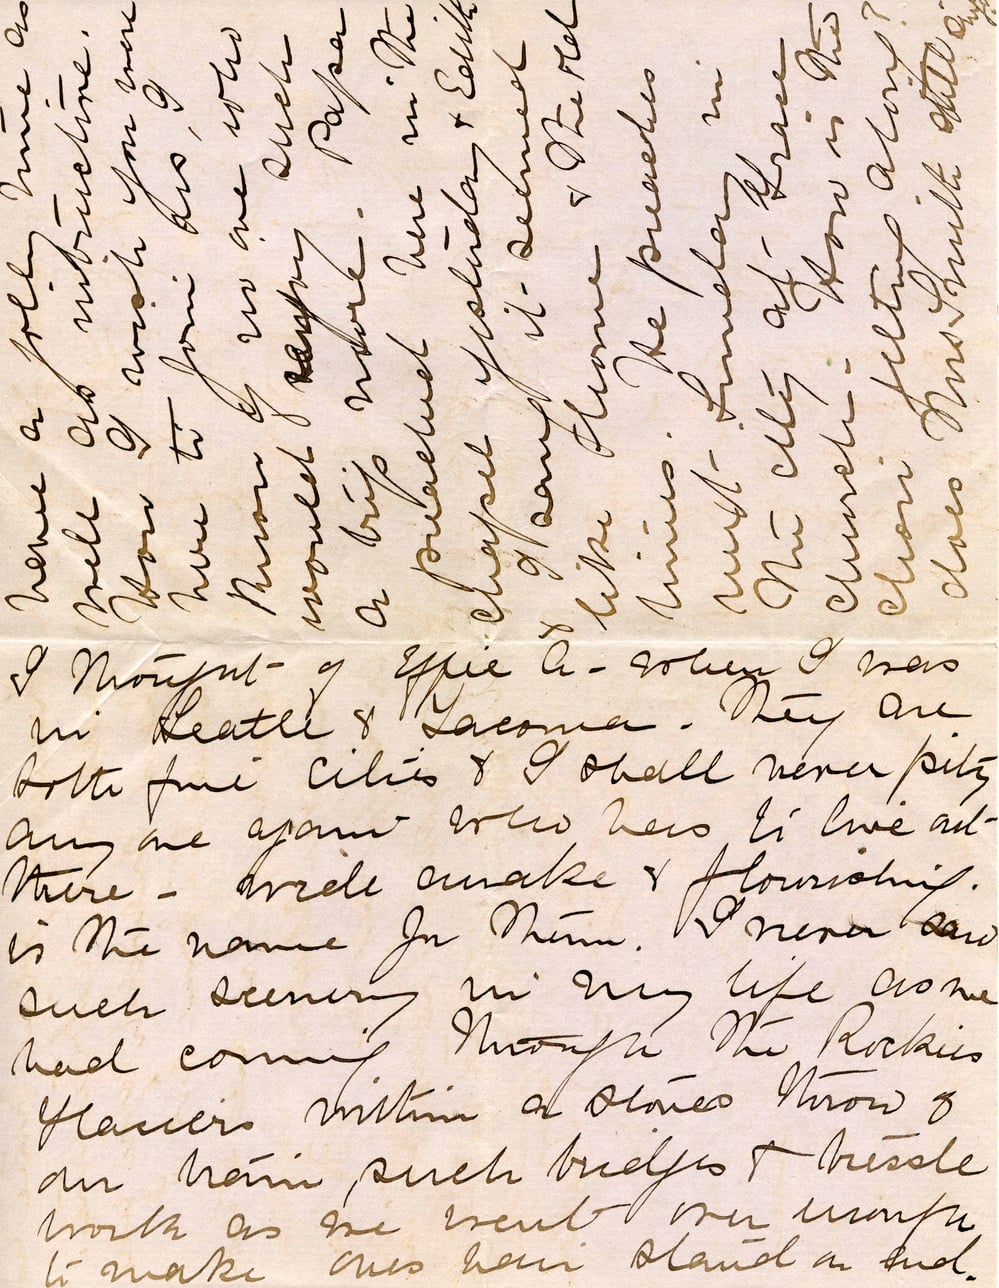 have a jolly time as
well as instructive.
How I wish you were
here to join us, I
know of no one who
would enjoy such
a trip more. Papa
preached here in the
chapel yesterday & Edith
& I sang it - seemed
like home & the old
times. He preaches
next - Sunday in
the city at - Grace
church - How is the
choir getting along?
does Mrs Smith still sing?
I thought - of Effie A - when I was
in Seatle & Tacoma - They are
both fine cities & I shall never pity
any one again who has to live out
there - wide awake & flourishing.
is the name for them. I never saw
such scenery in my life as we
had coming through the Rockies
Glaciers within a stones throw of
our train, such bridges & tressle
work as we went over enough
to make ones hair stand on end.